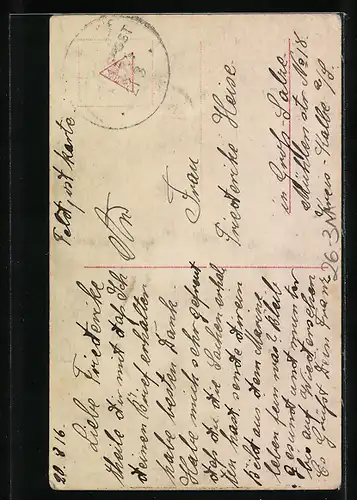 Feldpostkarte
An
Frau
Friedericke Heise
in Groß-Salze
Mühlenstr No 18
Kreis-Kalbe a/S
29.3.16.
Liebe Friedericke
theile Dir mit das Ich
deinen Brief erhalten
habe besten Dank.
Habe mich sehr gefreut
das du die Sachen erhal
ten hast. sende dir ein
Bild aus dem
leben fein was? bleib
gesund und munter
bis auf Wiedersehen
Es Grüßt Dein Franz
26-3